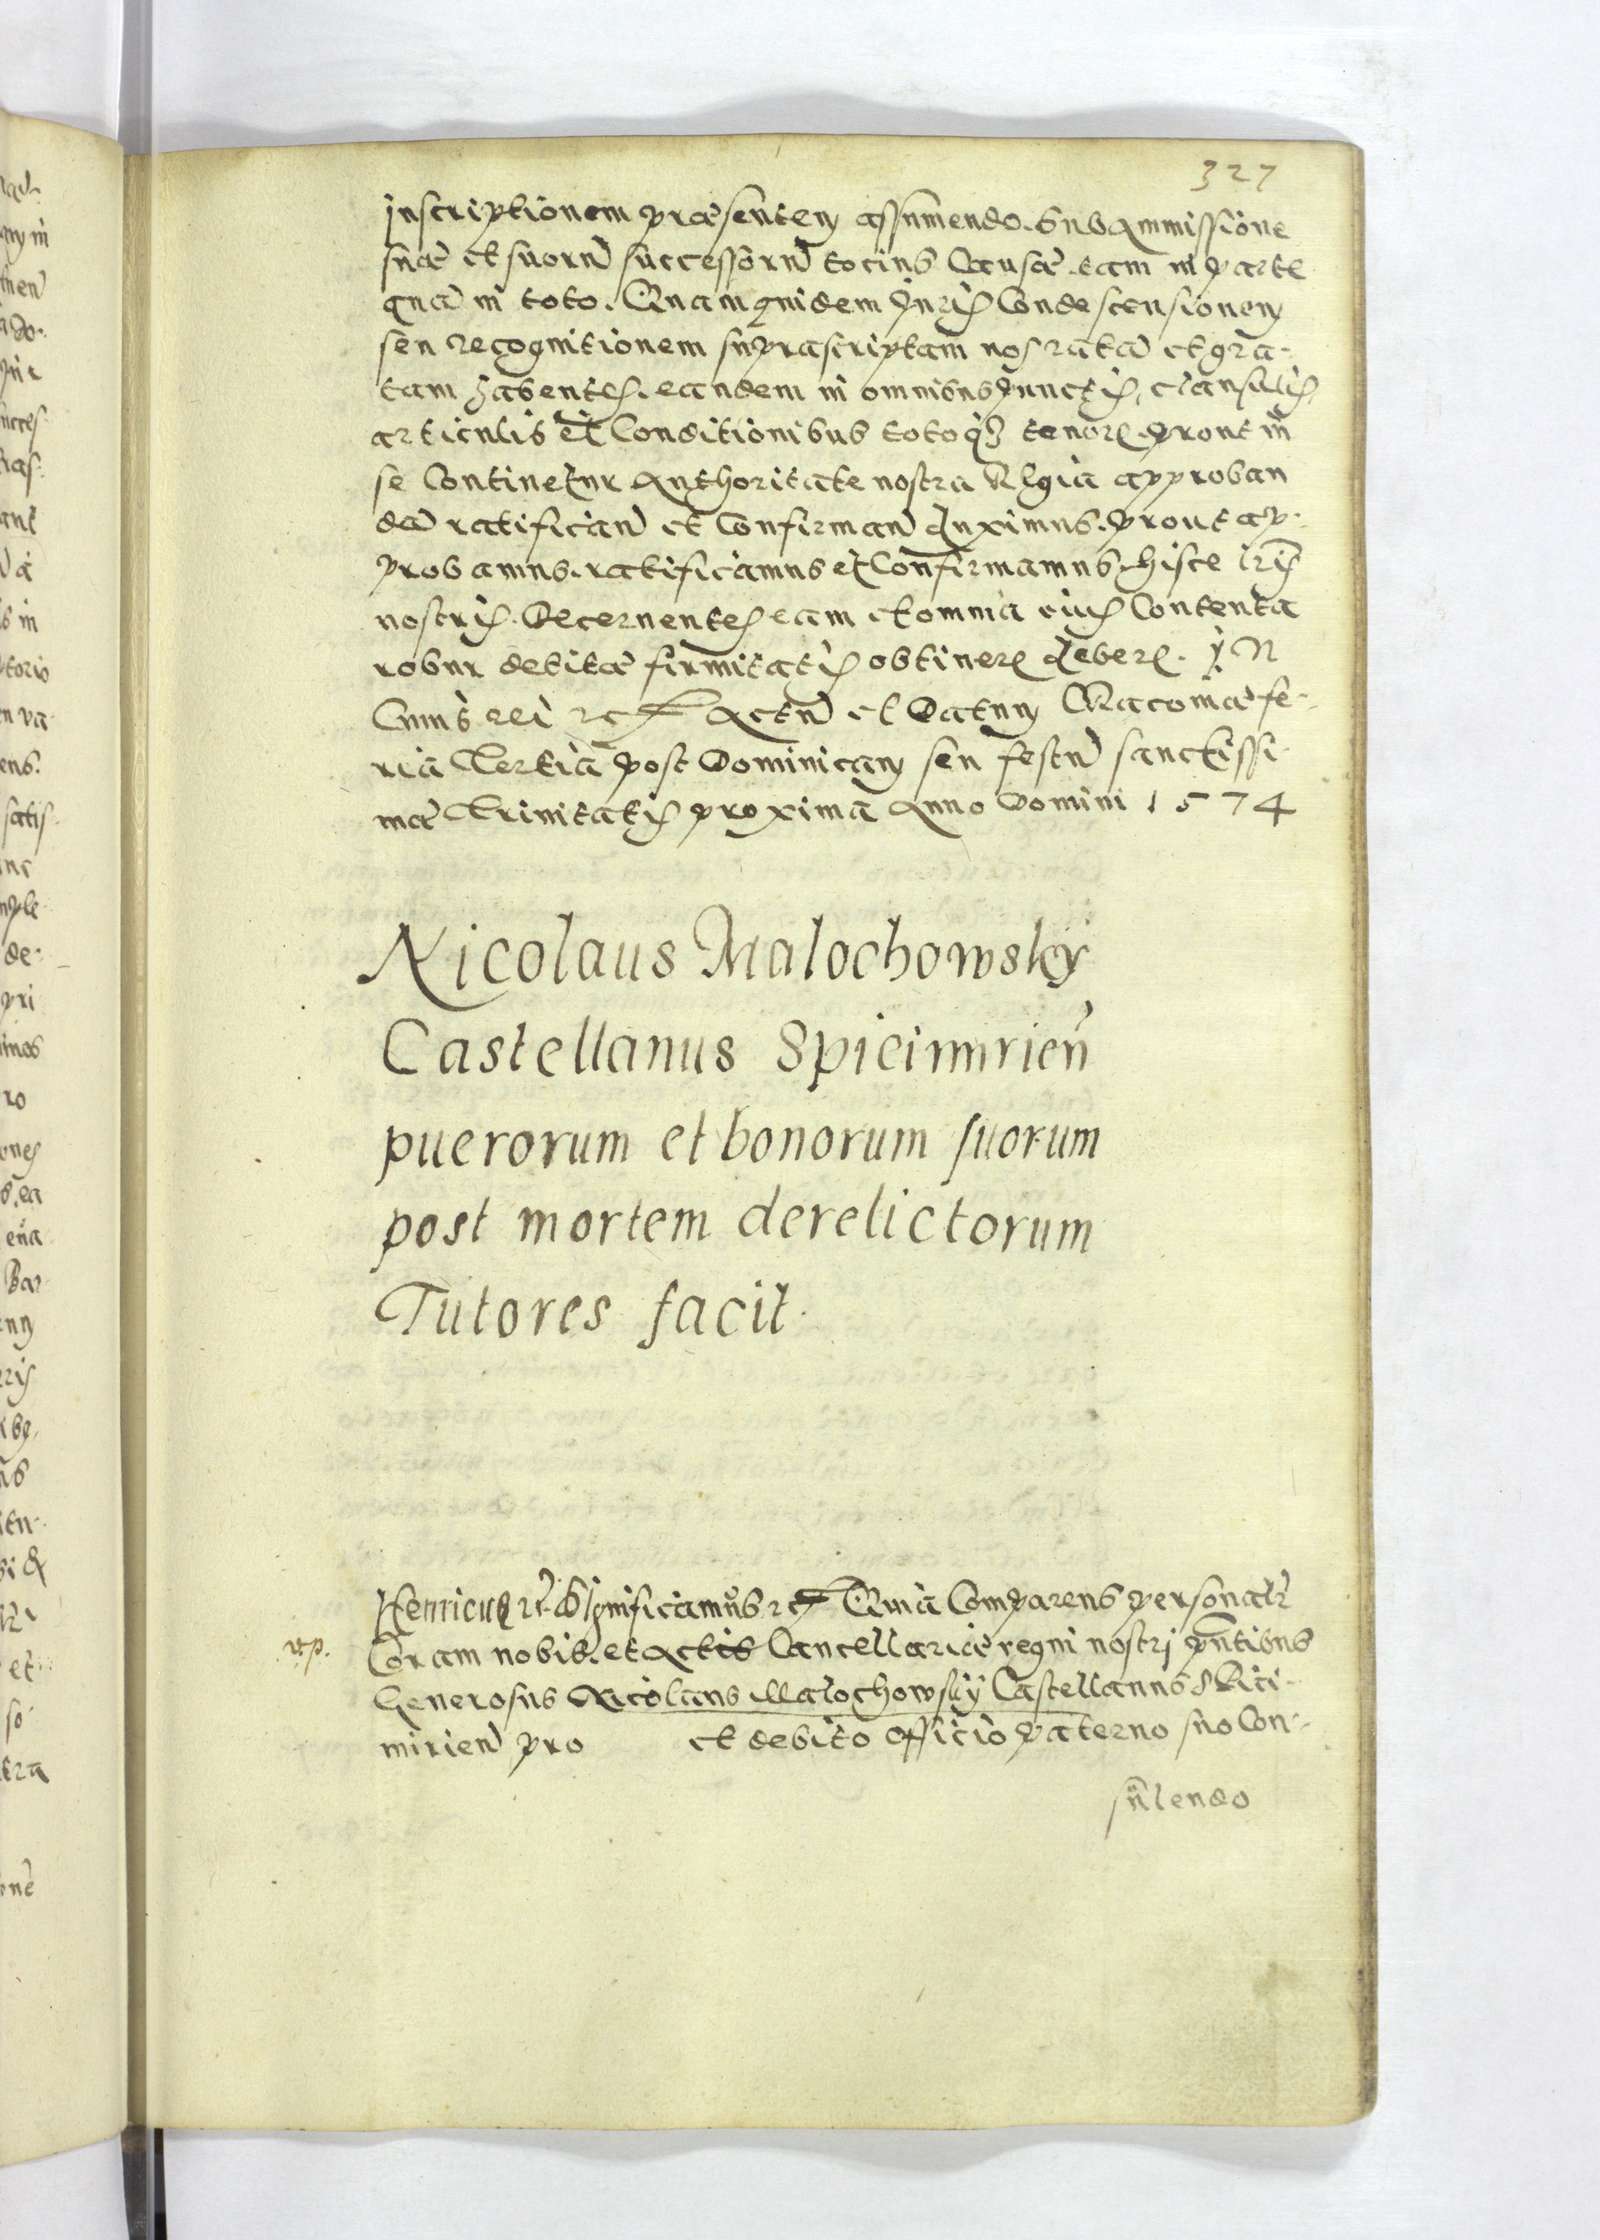 327
inscriptionem præsentem assumendo. Sub Ammissione
suæ et suorũ successorũ totius Causæ tam in parte
quã in toto. Quam quidem Juris Condescensionem
seu recognitionem supрascriptam nos ratã et gra-
tam habentes. eandem in omnibus punctis, clausulis,
articulis et Conditionibus totoq3 tenore. prout in
se Continetur Authoritate nostra Regia approban
dã ratificanđ et Confirmanđ duximus. prout ap-
probamus. ratificamus et Confirmamus. hisce lris
nostris. Decernentes eam et omnia eius Contenta
robur debitæ firmitatis obtinere debere. IN
Cuius rei etc Actũ et Datum Cracoviæ fe-
ria Tertia post Dominicam seu festũ sanctissi-
mæ Trinitatis proxima Anno Domini 1574
Nicolaus Malochowsky
Castellanus Spicimirien̄
puerorum et bonorum suorum
post mortem derelictorum
Tutores facit.
Henricus etc Significamus etc Quia Comparens personalr
Coram nobis. et actis Cancellariæ regni nostri pn̄tibus
Generosus Nicolaus Malochowsky Castellanus Spici-
mirien̄ pro et debito officio paterno suo Con-
sulendo